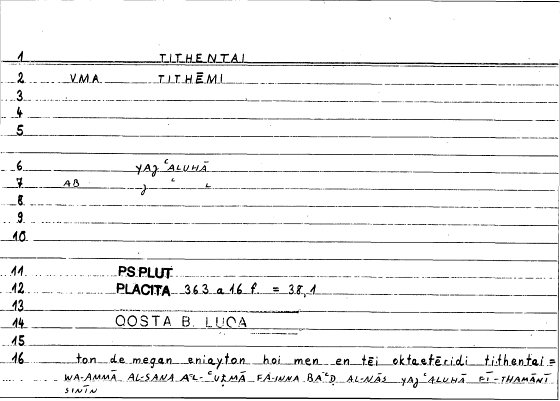 1 TITHENTAI
2 VMA TITHĒMI
3
4
5
6 YAJʿALUHĀ
7 AB J ʿ L
8
9
10
11 PS.PLUT
12 PLACITA 363 a 16 f. = 38,1
13
14 QOSTA B. LUCA
15
16 ton de megan eniayton hoi men en tēi oktaetēridi tithentai =
WA-AMMĀ AL-SANA AL-ʿUẒMĀ FA-INNA BAʿḌ AL-NĀS YAJʿALUHĀ FĪ-THAMĀNĪ
SINĪN